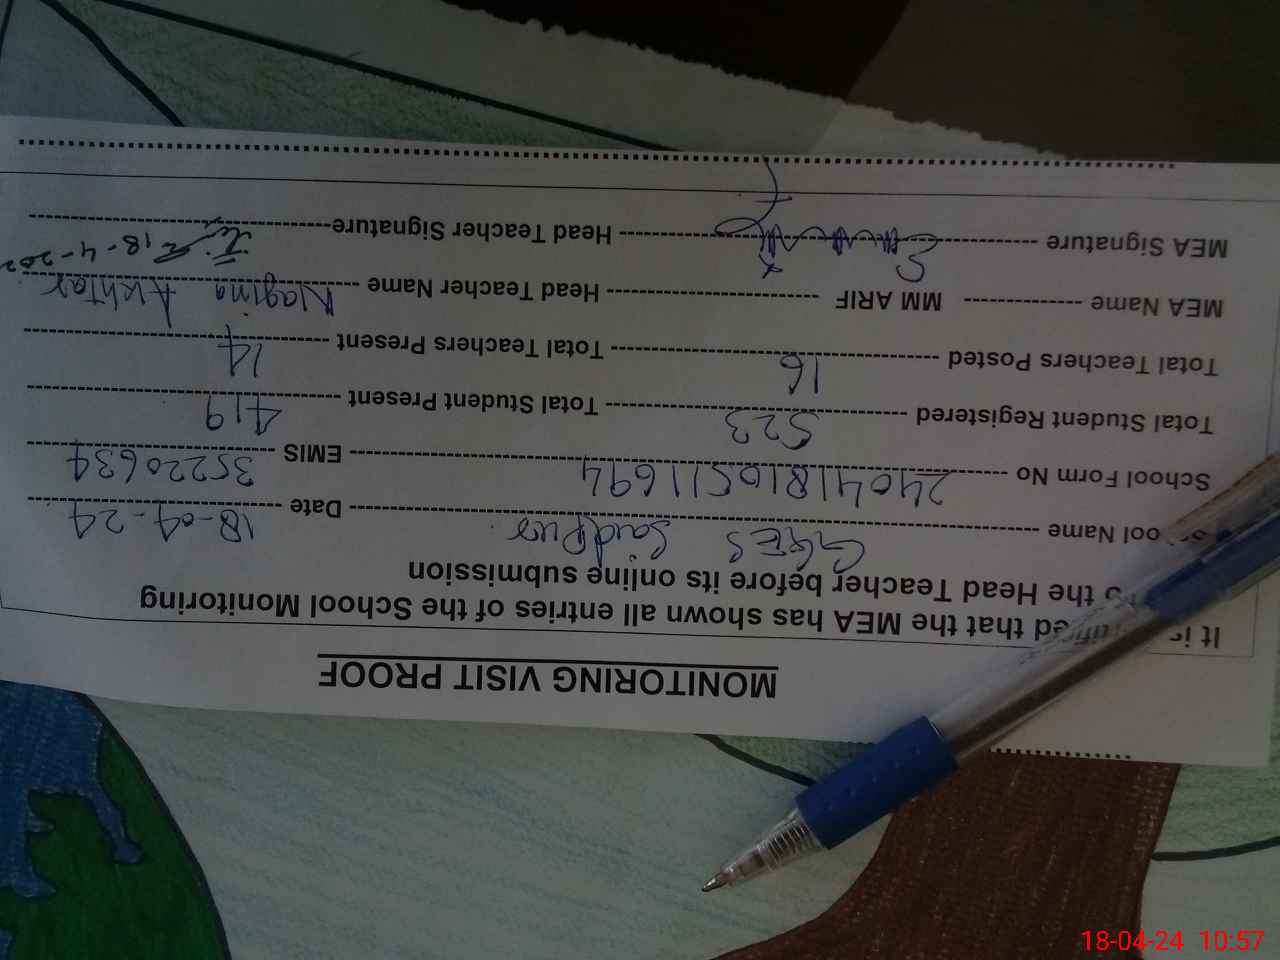 MONITORING VISIT PROOF
It is that the MEA has shown all entries of the School Monitoring
the Head Teacher before its online submission
ool Name GGES Saidpur Date 18-04-24
School Form No 2404181051169 4 EMIS 35220634
Total Student Registered 523 Total Student Present 419
Total Teachers Posted 16 Total Teachers Present 14
MEA Name MM ARIF Head Teacher Name Nagina Akhtar
MEA Signature Head Teacher Signature 18-4-202
18-04-24 10:57